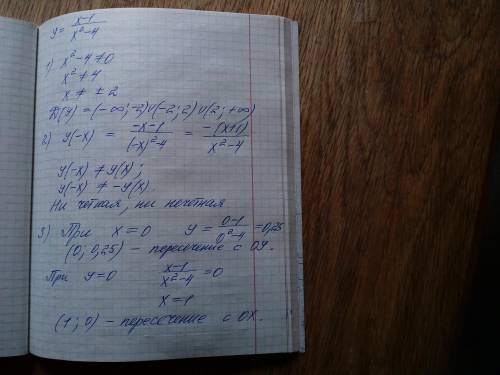 y = x-1 / x²-4
1) x²-4≠0
x²≠4
x ≠ ±2
D(y) = (-∞; -2)∪(-2; 2)∪(2; +∞)
2) y(-x) = -x-1 / (-x)²-4 = -(x+1) / x²-4
y(-x) ≠ y(x);
y(-x) ≠ -y(x).
Ни чётная, ни нечётная
3) При x=0 y = 0-1 / 0²-4 = 0,25
(0; 0,25) - пересечение с OY.
При y=0 x-1 / x²-4 = 0
x=1
(1; 0) - пересечение с OX.